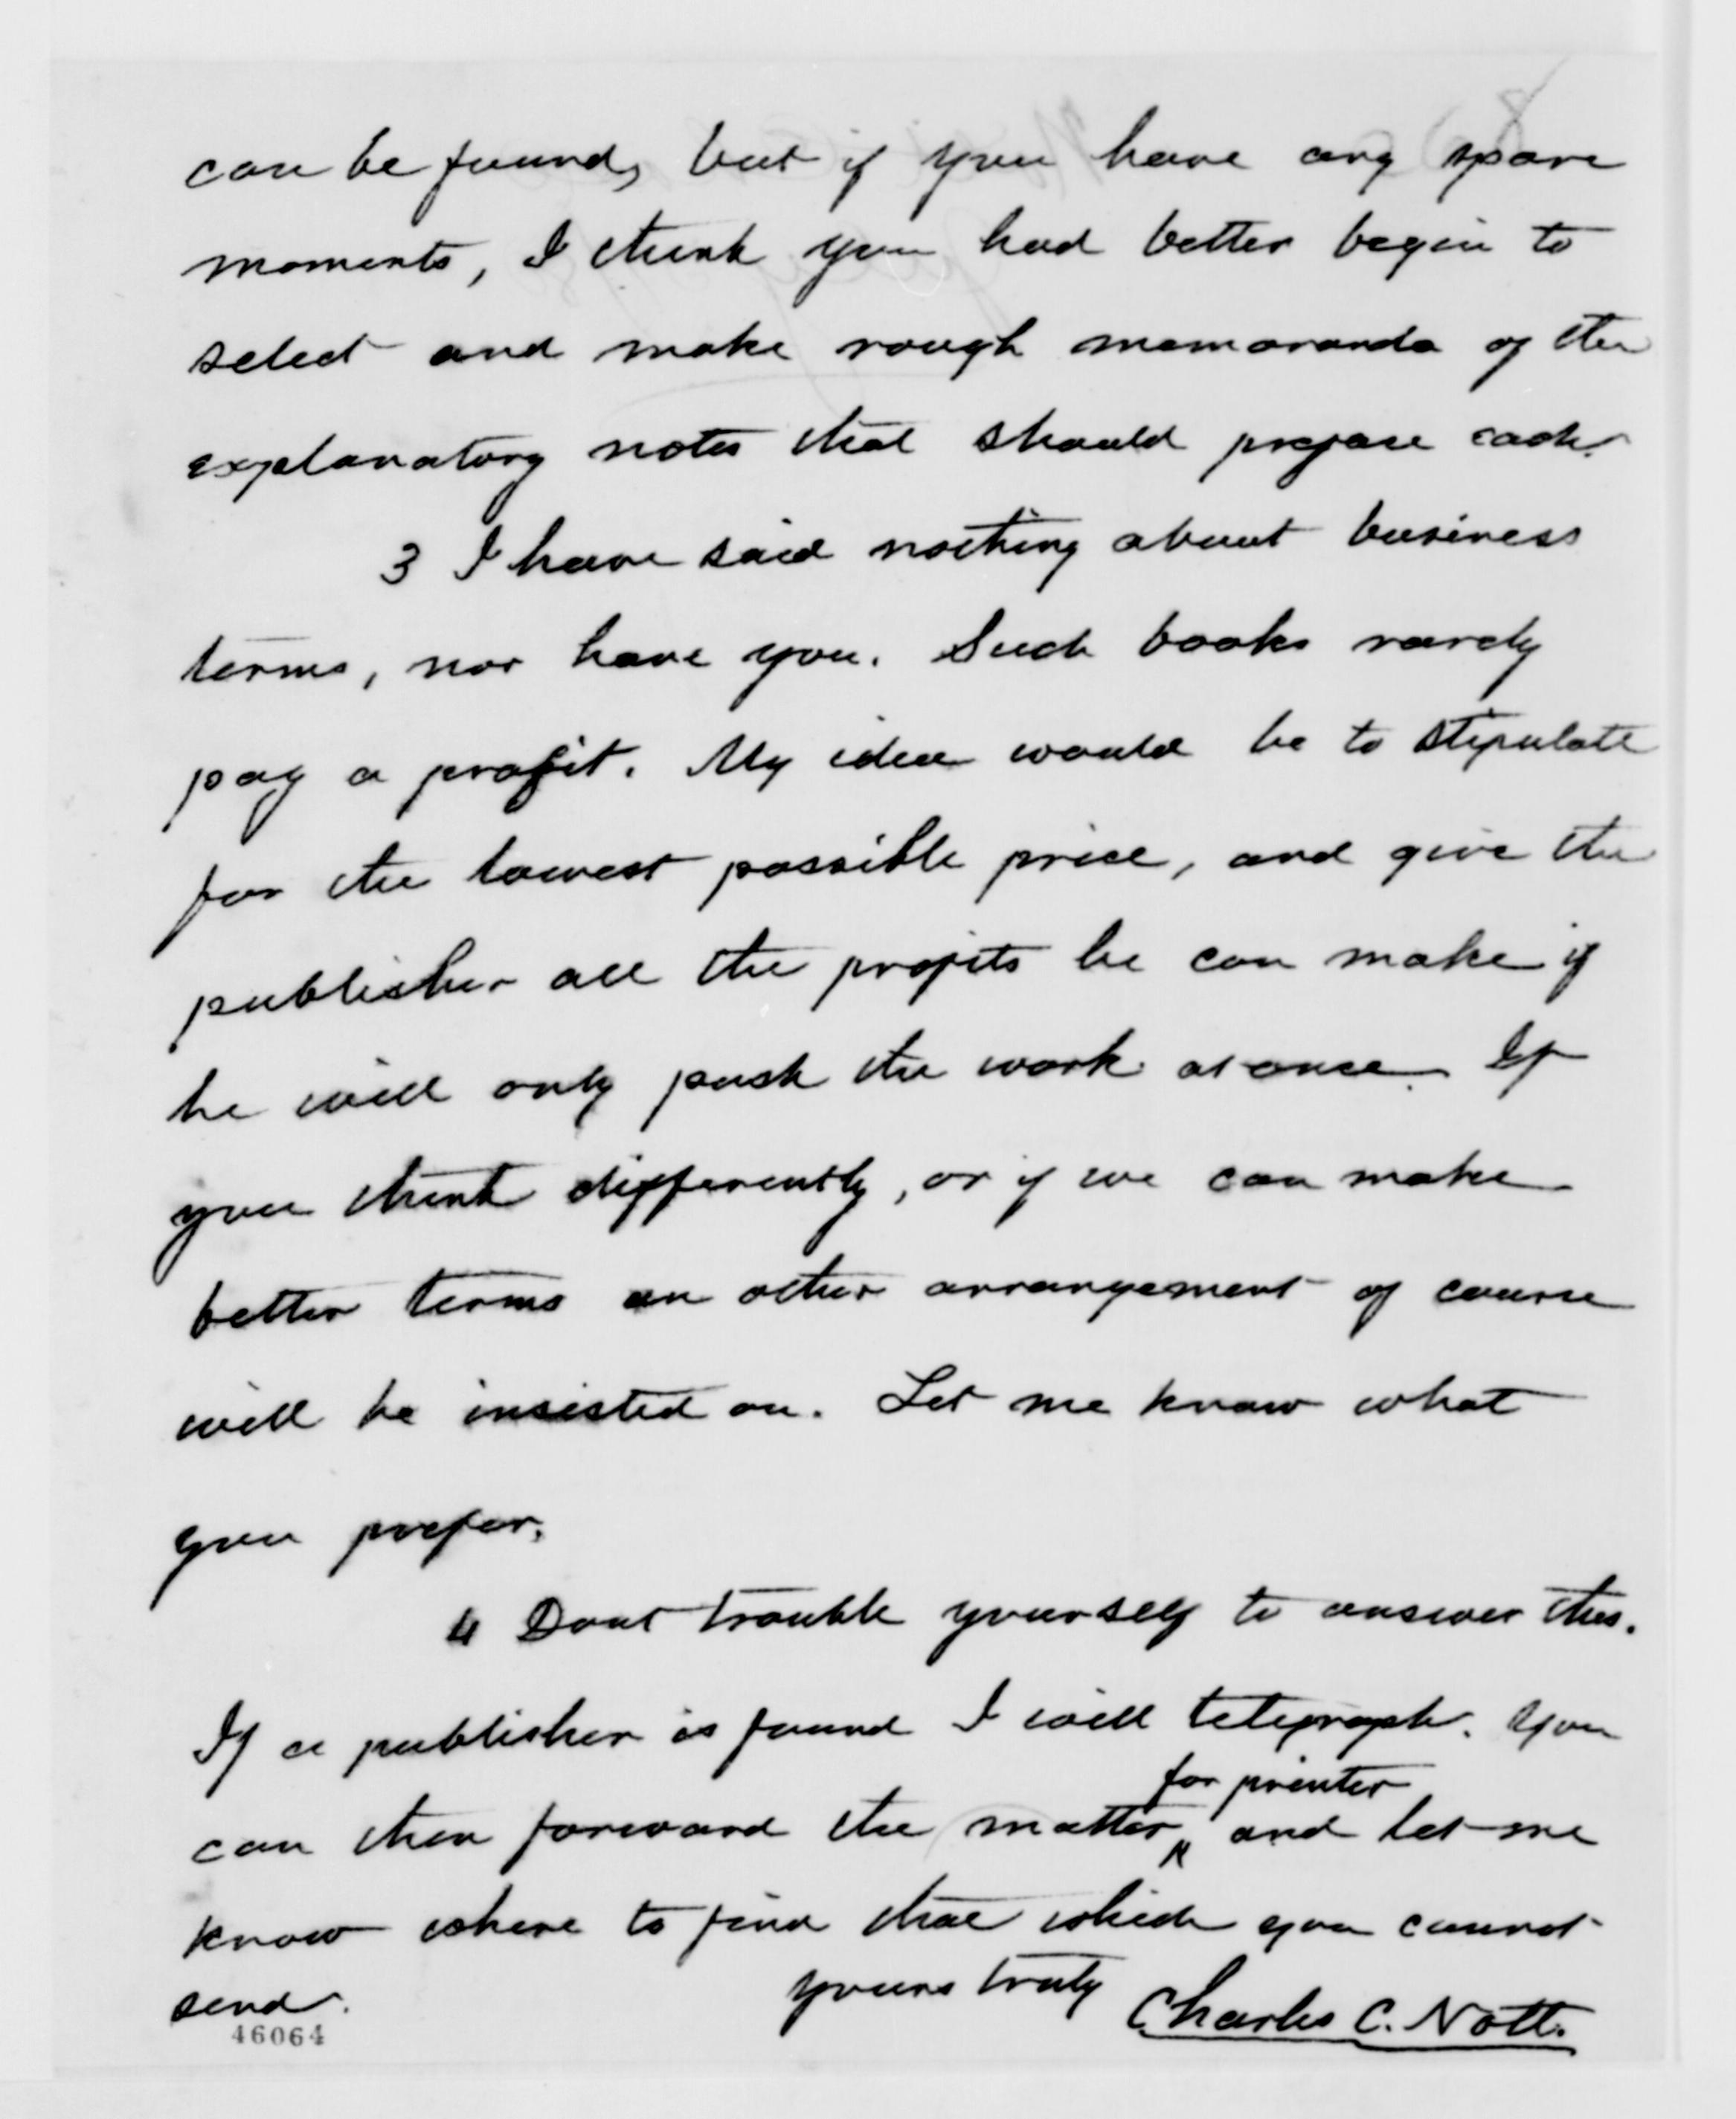 can be found, but if you have any spare
moments, I think you had better begin to
select and make rough memoranda of the
explanatory notes that should preface each.
3 I have said nothing about business
terms, nor have you. Such books rarely
pay a profit. My idea would be to stipulate
for the lowest possible price, and give the
publisher all the profits he can make if
he will only push the work at once. If
you think differently, or if we can make
better terms an other arrangement of course
will be insisted on. Let me know what
you prefer.
4 Dont trouble yourself to answer this.
If a publisher is found I will telegraph. You
for printer
can then forward the matter ^ and let me
know where to find that which you cannot
send.
yours truly
Charles C. Nott.
46064